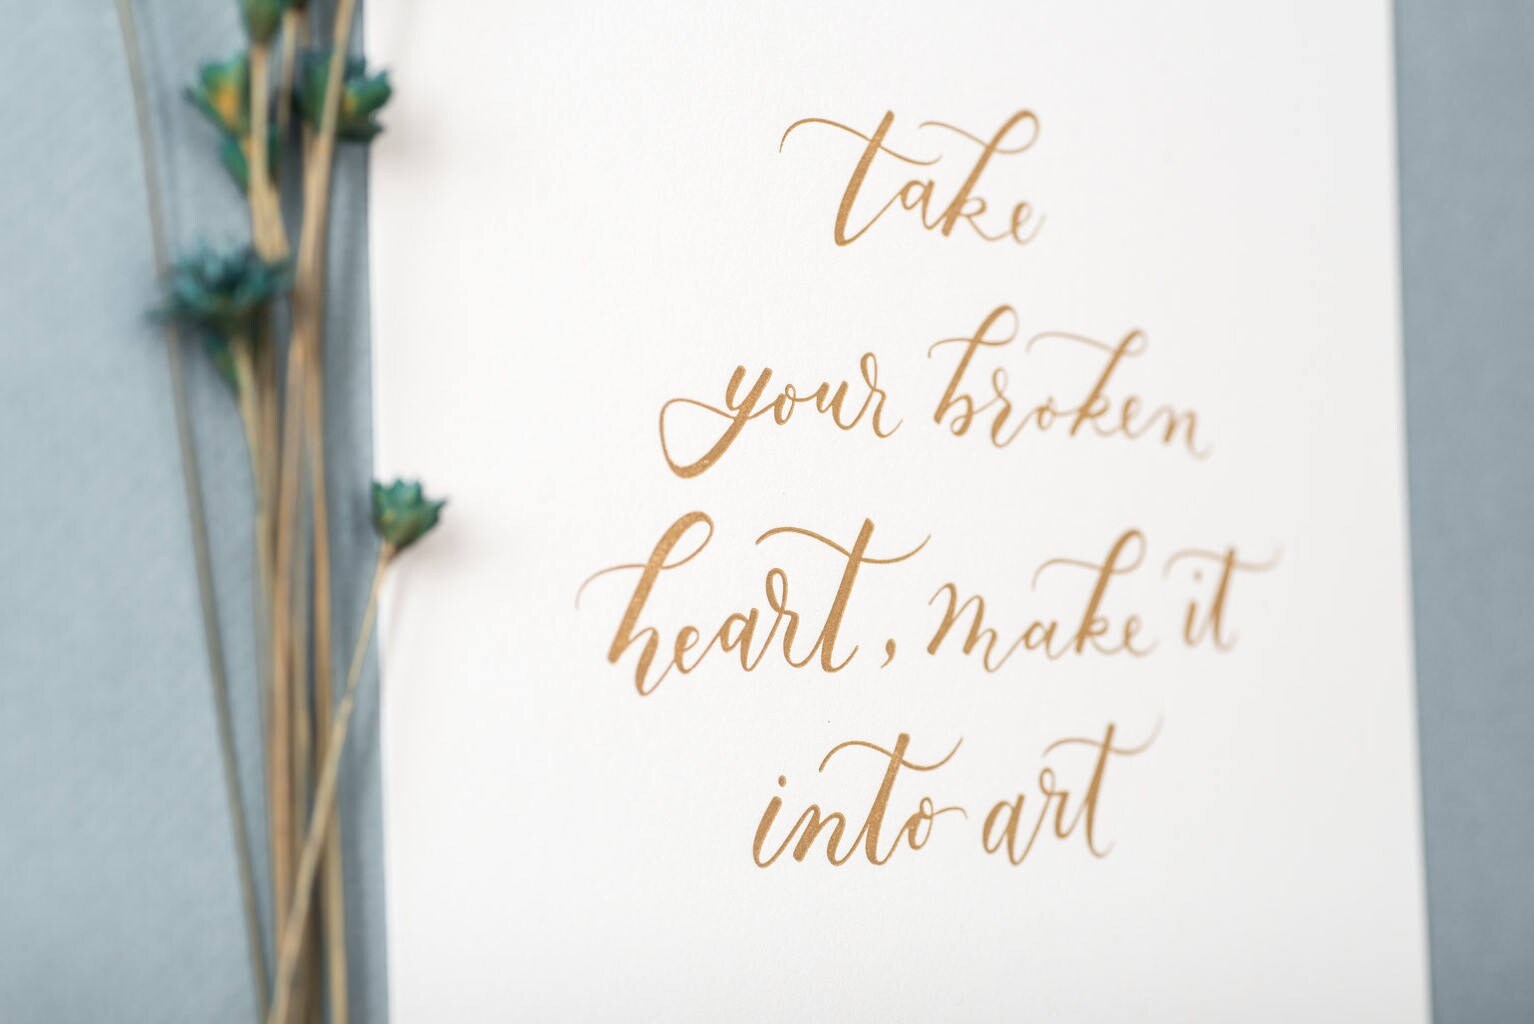 take
your broken
heart, make it
into art